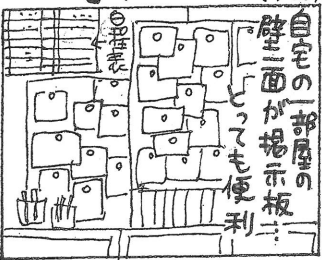 自宅の一部屋の
壁一面が掲示板…
とっても便利
日程表